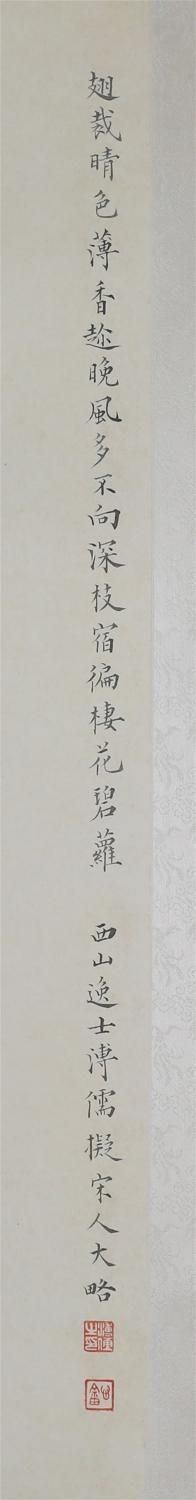 翅裁晴色薄香趁晚風多不向深枝宿徧棲花碧蘿
西山逸士溥儒擬宋人大略